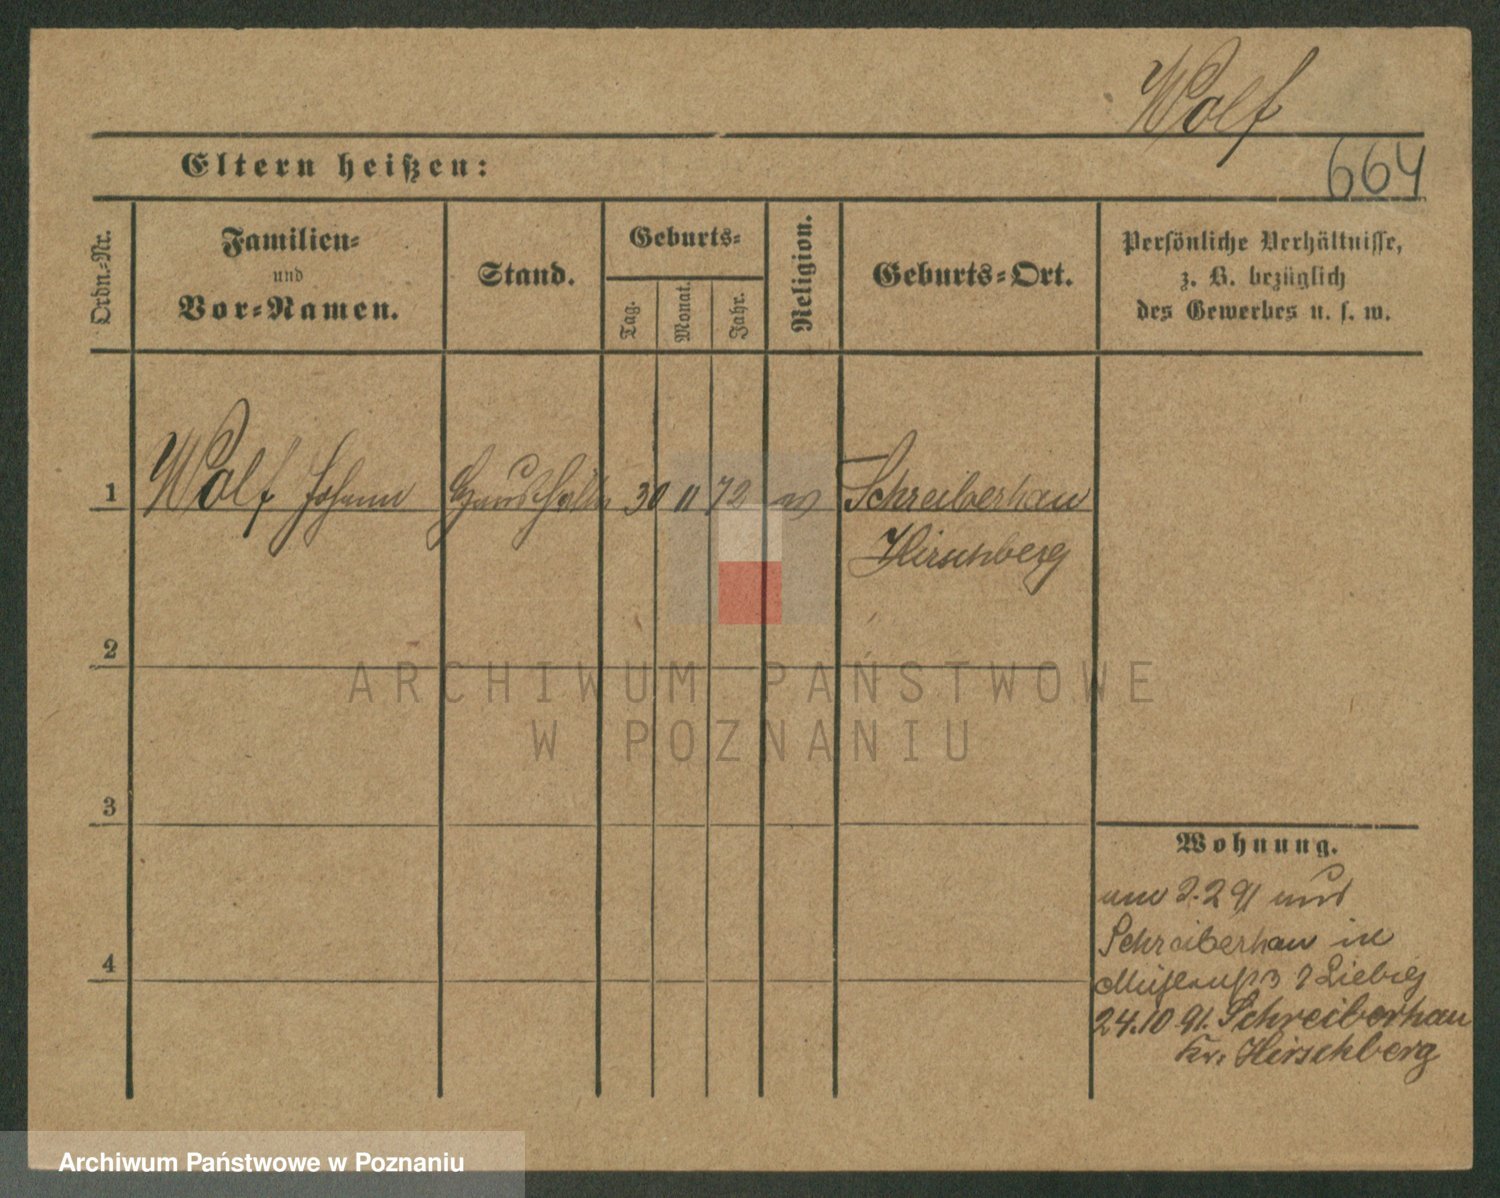 Wolf
Eltern heißen:
664
Ordn.-Nr.
Familien-
und
Vor-Namen.
Stand.
Geburts-
Tag.
Monat.
Jahr.
Religion.
Geburts-Ort.
Persönliche Verhältnisse,
z. B. bezüglich
des Gewerbes u. s. w.
1 Wolf Johann Haushälter 30 11 72 ev Schreiberhau
Hirschberg
2
ARCHIWUM PAŃSTWOWE
W POZNANIU
3
Wohnung.
2.2 91
Schreiberhau in
4
Liebig
24.10 91. Schreiberhau
Kr. Hirschberg
Archiwum Państwowe w Poznaniu